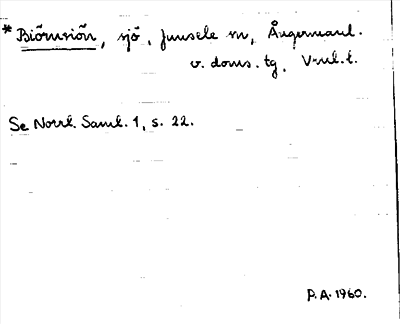 * Biörnsiön, sjö, Junsele sn, Ångermanl.
v. doms. tg. V-nl. l.
Se Norrl. Saml. 1, s. 22.
P.A. 1960.